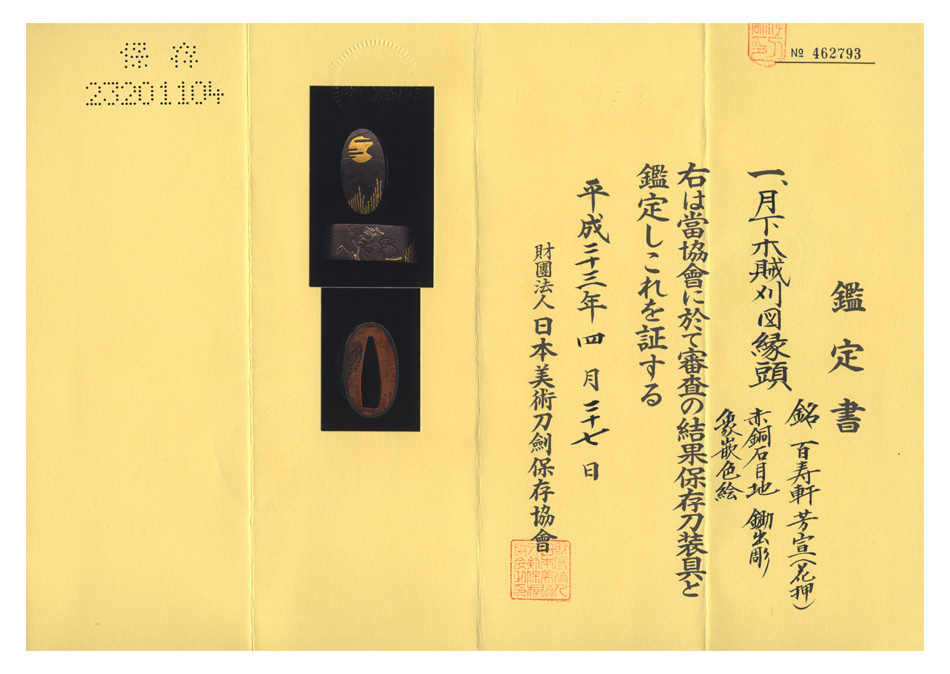 № 462793
鑑定書
一、月下木賊刈図縁頭
銘 百寿軒芳宣（花押）
赤銅石目地 鋤出彫
象嵌色絵
右は當協會に於て審査の結果保存刀装具と
鑑定しこれを証する
平成二十三年四月二十七日
財團法人日本美術刀劍保存協會
保存
23201104